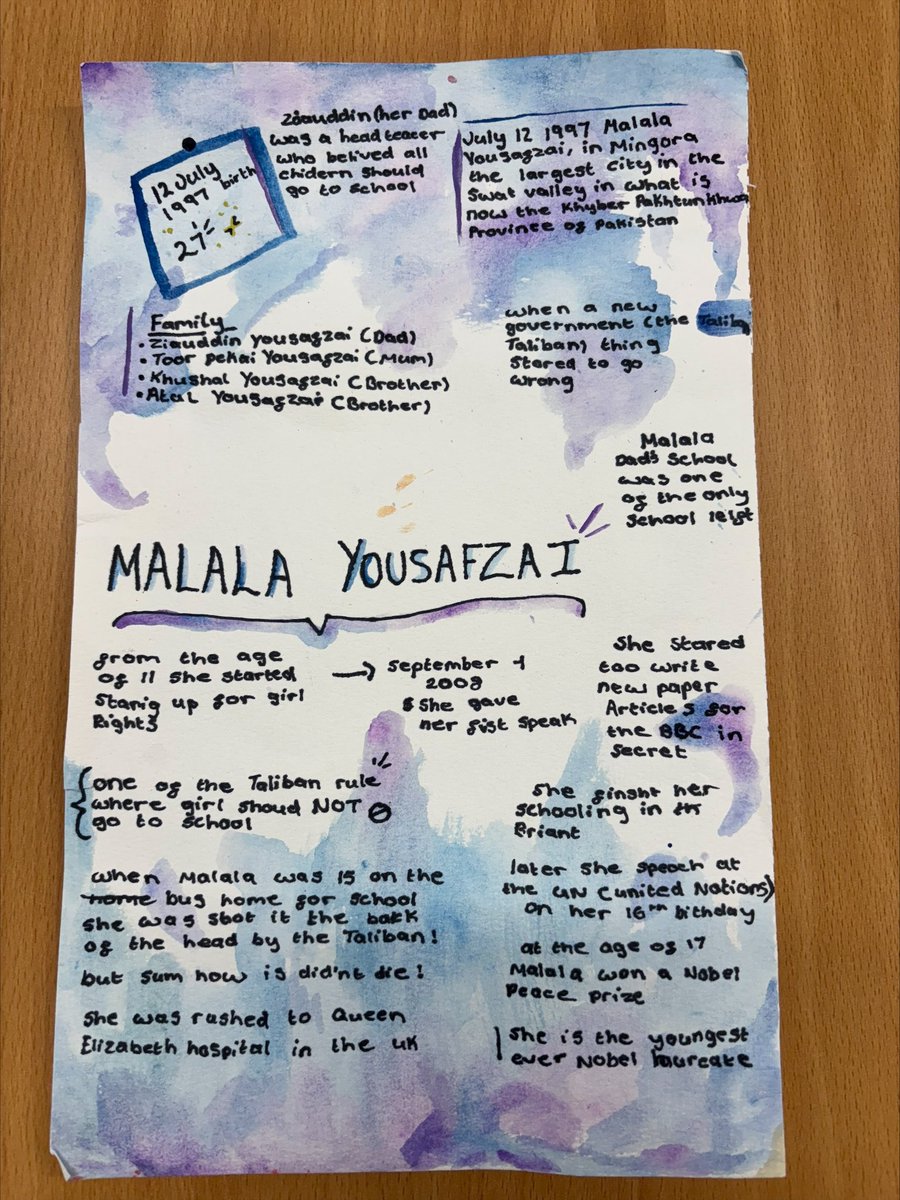 12 July
1997 birth
27
Ziauddin (her Dad)
was a head teacer
who belived all
chidern should
go to school
July 12 1997 Malala
Yousafzai, in Mingora
the largest city in the
Swat valley in what is
now the Khyber Pakhtunkhwa
Province of Pakistan
Family
• Ziauddin yousafzai (Dad)
• Toor pekai Yousafzai (Mum)
• Khushal Yousafzai (Brother)
• Atal Yousafzai (Brother)
when a new
government (the Talibn
Taliban) thing
Stared to go
wrong
Malala
Dad's School
was one
of the only
School leift
MALALA YOUSAFZAI
from the age
of 11 she started
Stanig up for girl
Rights
→ September 1
2008
she gave
her fist speak
She Stared
too write
new paper
Articles for
the BBC in
Secret
{one of the Taliban rule
where girl shoud NOT
go to school
She finsht her
Schooling in th
Briant
when Malala was 15 on the
home bus home for school
she was shot it the back
of the head by the Taliban!
but sum how is did'nt die!
She was rushed to Queen
Elizabeth hospital in the uk
later She speach at
the UN (united Nations)
on her 16th bithday
at the age of 17
Malala won a Nobel
Peace prize
She is the youngest
ever Nobel laureate